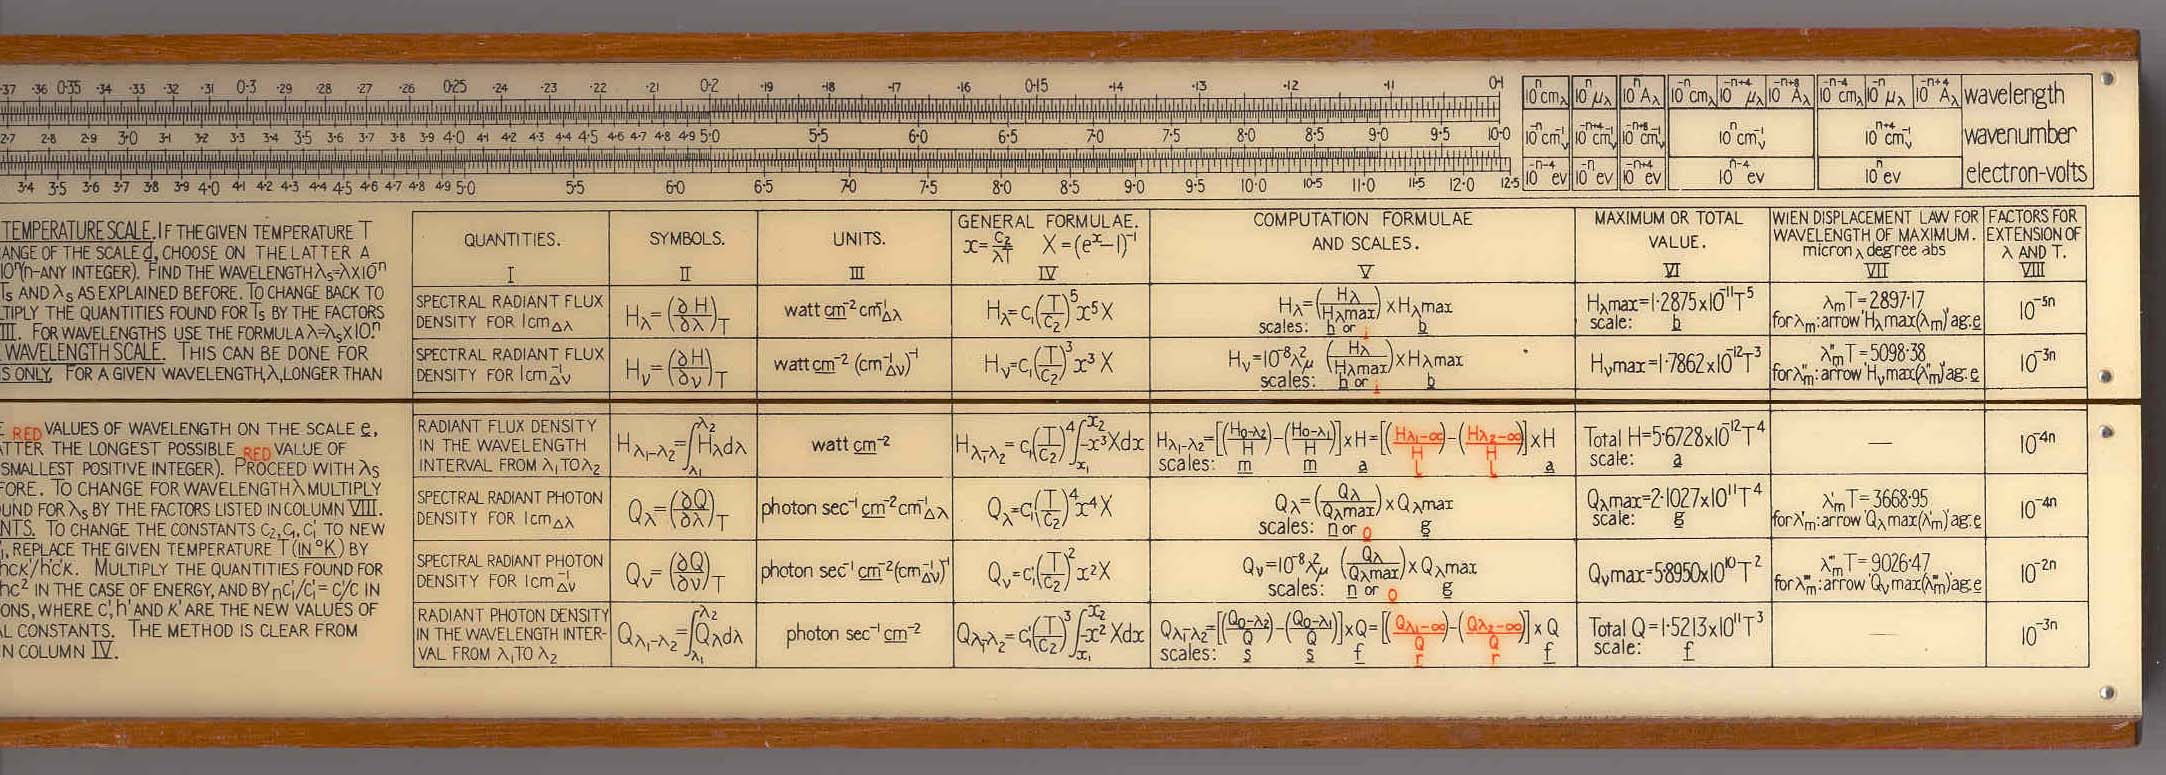 ·37 ·36 0·35 ·34 ·33 ·32 ·31 0·3 ·29 ·28 ·27 ·26 0·25 ·24 ·23 ·22 ·21 0·2 ·19 ·18 ·17 ·16 0·15 ·14 ·13 ·12 ·11 0·1
2·7 2·8 2·9 3·0 3·1 3·2 3·3 3·4 3·5 3·6 3·7 3·8 3·9 4·0 4·1 4·2 4·3 4·4 4·5 4·6 4·7 4·8 4·9 5·0 5·5 6·0 6·5 7·0 7·5 8·0 8·5 9·0 9·5 10·0
3·4 3·5 3·6 3·7 3·8 3·9 4·0 4·1 4·2 4·3 4·4 4·5 4·6 4·7 4·8 4·9 5·0 5·5 6·0 6·5 7·0 7·5 8·0 8·5 9·0 9·5 10·0 10·5 11·0 11·5 12·0 12·5
10ⁿ cmλ 10ⁿ μλ 10ⁿ Aλ 10⁻ⁿ cmλ 10⁻ⁿ⁺⁴ μλ 10⁻ⁿ⁺⁸ Aλ 10⁻ⁿ⁻⁴ cmλ 10⁻ⁿ μλ 10⁻ⁿ⁺⁴ Aλ wavelength
10⁻ⁿ cm⁻¹ν 10⁻ⁿ⁺⁴ cm⁻¹ν 10⁻ⁿ⁺⁸ cm⁻¹ν 10ⁿ cm⁻¹ν 10ⁿ⁺⁴ cm⁻¹ν wavenumber
10⁻ⁿ⁻⁴ ev 10⁻ⁿ ev 10⁻ⁿ⁺⁴ ev 10ⁿ⁻⁴ ev 10ⁿ ev electron-volts
TEMPERATURE SCALE. IF THE GIVEN TEMPERATURE T
ANGE OF THE SCALE d, CHOOSE ON THE LATTER A
10ⁿ(n-ANY INTEGER). FIND THE WAVELENGTH λs=λx10⁻ⁿ
Ts AND λs AS EXPLAINED BEFORE. TO CHANGE BACK TO
TIPLY THE QUANTITIES FOUND FOR Ts BY THE FACTORS
III. FOR WAVELENGTHS USE THE FORMULA λ=λsx10ⁿ.
WAVELENGTH SCALE. THIS CAN BE DONE FOR
S ONLY. FOR A GIVEN WAVELENGTH, λ, LONGER THAN
E RED VALUES OF WAVELENGTH ON THE SCALE e,
ATTER THE LONGEST POSSIBLE RED VALUE OF
SMALLEST POSITIVE INTEGER). PROCEED WITH λs
FORE. TO CHANGE FOR WAVELENGTH λ MULTIPLY
UND FOR λs BY THE FACTORS LISTED IN COLUMN VIII.
NTS. TO CHANGE THE CONSTANTS C₂, C₁, C₁' TO NEW
, REPLACE THE GIVEN TEMPERATURE T (IN °K) BY
hcκ'/h'c'κ. MULTIPLY THE QUANTITIES FOUND FOR
hc² IN THE CASE OF ENERGY, AND BY nC₁'/C₁'=C'/C IN
ONS, WHERE C', h' AND κ' ARE THE NEW VALUES OF
AL CONSTANTS. THE METHOD IS CLEAR FROM
N COLUMN IV.
QUANTITIES. I
SYMBOLS. II
UNITS. III
GENERAL FORMULAE.
x=c₂/λT X=(eˣ-1)⁻¹
IV
COMPUTATION FORMULAE
AND SCALES.
V
MAXIMUM OR TOTAL
VALUE.
VI
WIEN DISPLACEMENT LAW FOR
WAVELENGTH OF MAXIMUM.
micron λ degree abs
VII
FACTORS FOR
EXTENSION OF
λ AND T.
VIII
SPECTRAL RADIANT FLUX
DENSITY FOR 1cm Δλ
Hλ=(∂H/∂λ)T
watt cm⁻² cm⁻¹Δλ
Hλ=c₁(T/c₂)⁵x⁵X
Hλ=(Hλ/Hλmax)xHλmax
scales: h or i b
Hλmax=1·2875x10⁻¹¹T⁵
scale: b
λmT=2897·17
for λm: arrow 'Hλmax(λm)' ag. e
10⁻⁵ⁿ
SPECTRAL RADIANT FLUX
DENSITY FOR 1cm⁻¹Δν
Hν=(∂H/∂ν)T
watt cm⁻² (cm⁻¹Δν)⁻¹
Hν=c₁(T/c₂)³x³X
Hν=10⁻⁸λ²μ(Hλ/Hλmax)xHλmax
scales: h or i b
Hνmax=1·7862x10⁻¹²T³
λ"mT=5098·38
for λ"m: arrow 'Hνmax(λ"m)' ag. e
10⁻³ⁿ
RADIANT FLUX DENSITY
IN THE WAVELENGTH
INTERVAL FROM λ₁ TO λ₂
Hλ₁-λ₂=∫λ₁λ₂ Hλdλ
watt cm⁻²
Hλ₁-λ₂=c₁(T/c₂)⁴∫x₁x₂ -x³Xdx
Hλ₁-λ₂=[(H₀-λ₂/H)-(H₀-λ₁/H)]xH=[(Hλ₁-∞/H)-(Hλ₂-∞/H)]xH
scales: m m a l l a
Total H=5·6728x10⁻¹²T⁴
scale: a
—
10⁻⁴ⁿ
SPECTRAL RADIANT PHOTON
DENSITY FOR 1cm Δλ
Qλ=(∂Q/∂λ)T
photon sec⁻¹ cm⁻² cm⁻¹Δλ
Qλ=c₁'(T/c₂)⁴x⁴X
Qλ=(Qλ/Qλmax)xQλmax
scales: n or o g
Qλmax=2·1027x10¹¹T⁴
scale: g
λ'mT=3668·95
for λ'm: arrow 'Qλmax(λ'm)' ag. e
10⁻⁴ⁿ
SPECTRAL RADIANT PHOTON
DENSITY FOR 1cm⁻¹Δν
Qν=(∂Q/∂ν)T
photon sec⁻¹ cm⁻² (cm⁻¹Δν)⁻¹
Qν=c₁'(T/c₂)²x²X
Qν=10⁻⁸λ²μ(Qλ/Qλmax)xQλmax
scales: n or o g
Qνmax=5·8950x10¹⁰T²
λ‴mT=9026·47
for λ‴m: arrow 'Qνmax(λ‴m)' ag. e
10⁻²ⁿ
RADIANT PHOTON DENSITY
IN THE WAVELENGTH INTER-
VAL FROM λ₁ TO λ₂
Qλ₁-λ₂=∫λ₁λ₂ Qλdλ
photon sec⁻¹ cm⁻²
Qλ₁-λ₂=c₁'(T/c₂)³∫x₁x₂ -x²Xdx
Qλ₁-λ₂=[(Q₀-λ₂/Q)-(Q₀-λ₁/Q)]xQ=[(Qλ₁-∞/Q)-(Qλ₂-∞/Q)]xQ
scales: s s f r r f
Total Q=1·5213x10¹¹T³
scale: f
—
10⁻³ⁿ